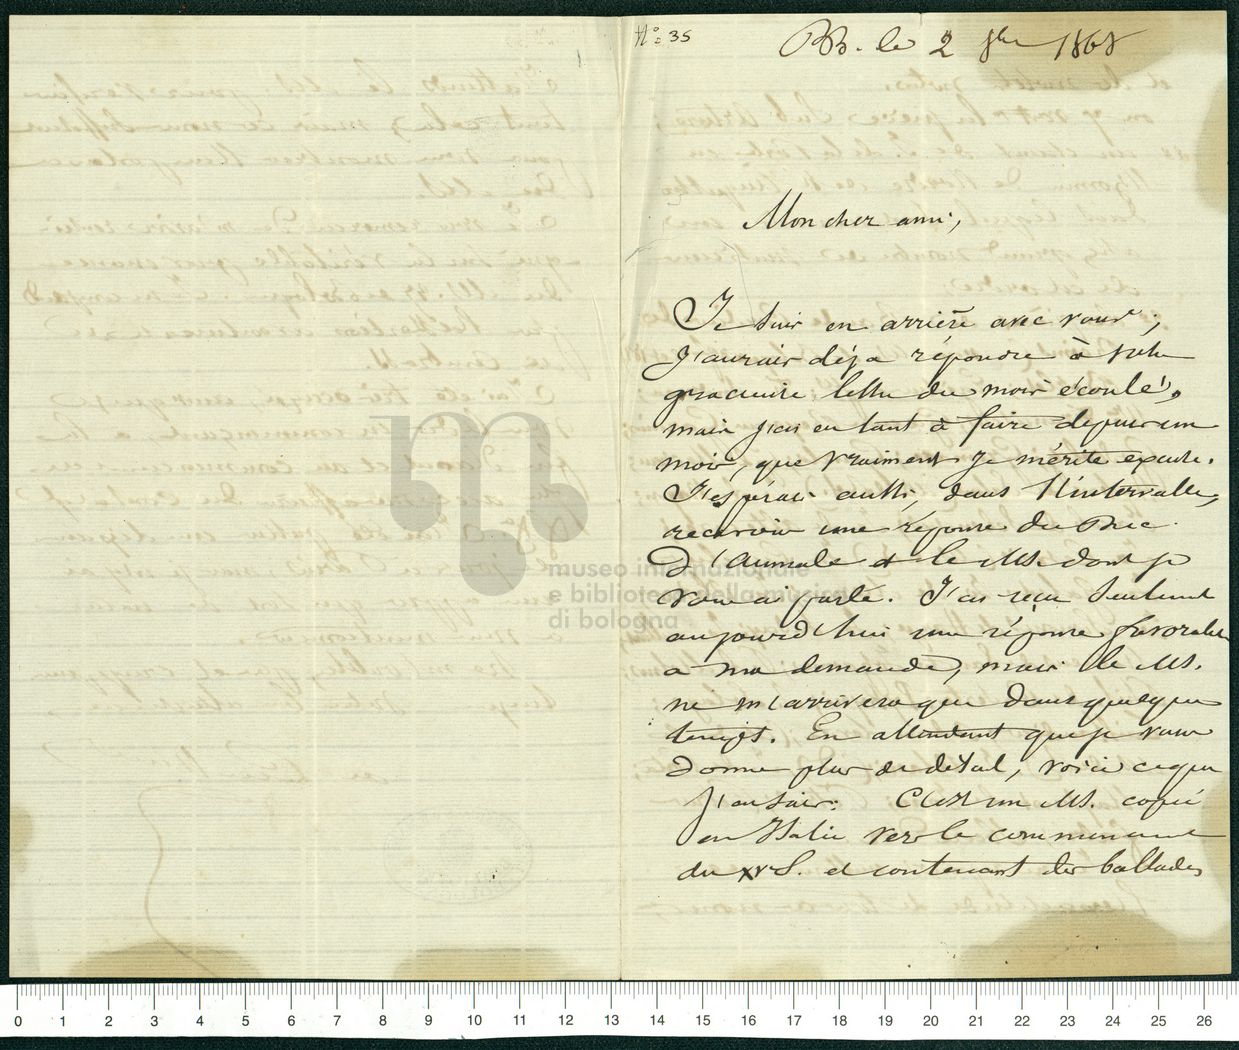 N:o 35
BB. le 2 8bre 1868
Mon cher ami,
Je suis en arrière avec vous ;
j'aurais déjà répondre à votre
gracieuse lettre du mois écoulé,
mais j'ai eu tant à faire depuis un
mois, que vraiment je mérite excuse.
J'espérais aussi, dans l'intervalle,
recevoir une réponse du Duc
d'Aumale et le MS. dont je
vous ai parlé. J'ai reçu seulement
aujourd'hui une réponse favorable
à ma demande, mais le MS.
ne m'arrivera que dans quelques
temps. En attendant que je vous
donne plus de détail, voici ce que
j'en sais: C'est un MS. copié
en Italie vers le commencement
du XV S. et contenant des ballades
museo internazionale
e biblioteca della musica
di bologna
0 1 2 3 4 5 6 7 8 9 10 11 12 13 14 15 16 17 18 19 20 21 22 23 24 25 26